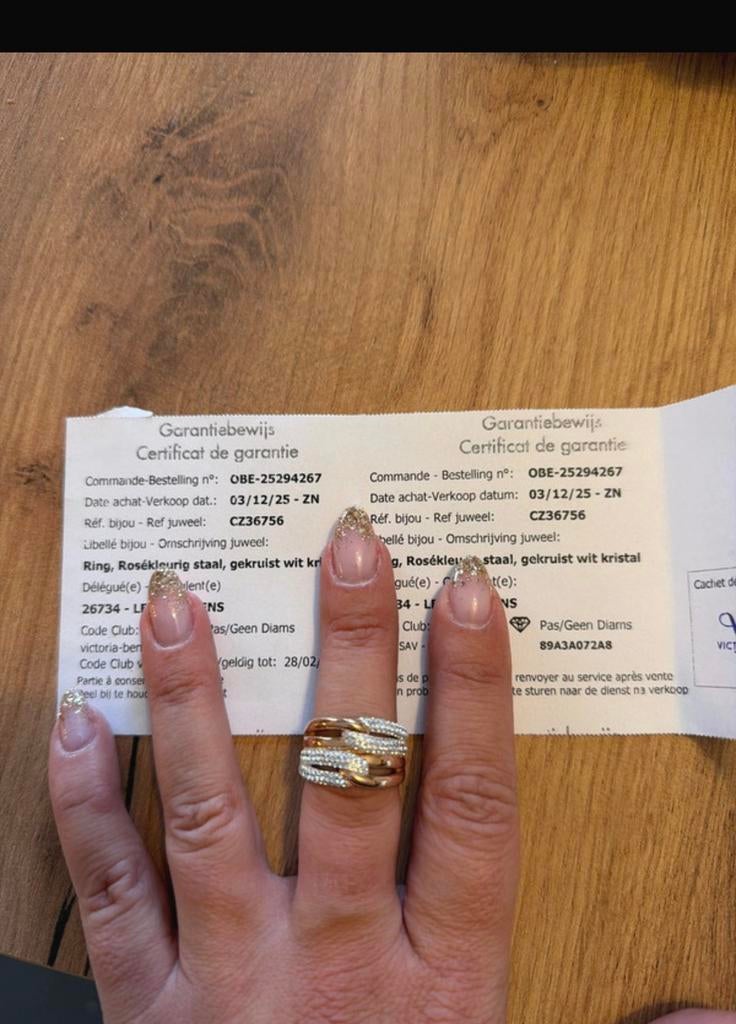 Garantiebewijs
Certificat de garantie
Commande-Bestelling n°: OBE-25294267
Date achat-Verkoop dat.: 03/12/25 - ZN
Réf. bijou - Ref juweel: CZ36756
Libellé bijou - Omschrijving juweel:
Ring, Rosékleurig staal, gekruist wit
Délégué(e) -
26734 -
Code Club: Pas/Geen Diams
Code Club geldig tot: 28/02/
Partie à
bij te
Garantiebewijs
Certificat de garantie
Commande - Bestelling n°: OBE-25294267
Date achat-Verkoop datum: 03/12/25 - ZN
Réf. bijou - Ref juweel: CZ36756
bijou - Omschrijving juweel:
Rosékleurig staal, gekruist wit kristal
Club: Pas/Geen Diams
SAV - 89A3A072A8
renvoyer au service après vente
te sturen naar de dienst na verkoop
Cachet